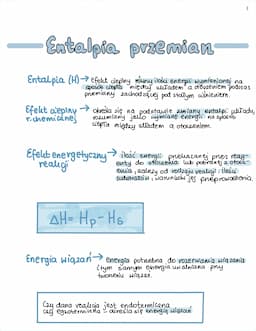 1
Entalpia przemian
Entalpia (H) → Efekt cieplny równy ilości energii wymienionej na
sposób ciepła między układem a otoczeniem podczas
przemiany zachodzącej pod stałym ciśnieniem.
Efekt cieplny → określa się na podstawie zmiany entalpii układu,
r. chemicznej rozumianej jako wymiana energii na sposób
ciepła między układem a otoczeniem.
Efekt energetyczny → ilość energii przekazanej przez reag-
reakcji enty do otoczenia lub pobranej z otocz-
enia, zależy od rodzaju reakcji, ilości
substratów, warunków jej przeprowadzenia.
ΔH = Hp - Hs
Energia wiązań → energia potrzebna do rozerwania wiązania
(tym samym energia uwalniana przy
tworzeniu wiązań.
Czy dana reakcja jest endotermiczna
czy egzotermiczna - określa się energią wiązań